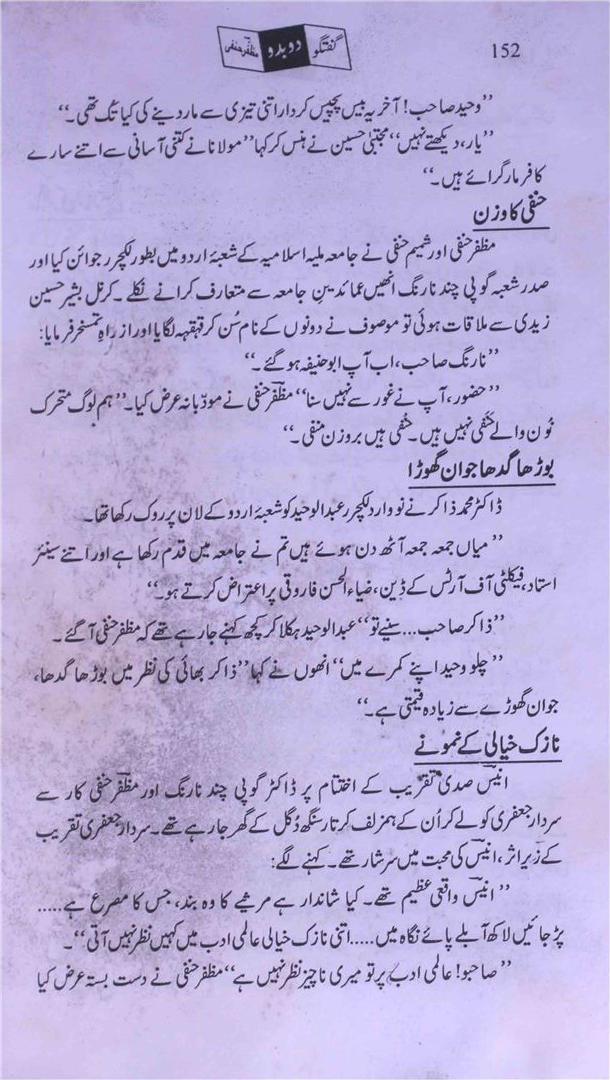 152
گفتگو دوبدو مظفر حنفی
’’وحید صاحب! آخر یہ بیس پچیس کردار اتنی تیزی سے مار دینے کی کیا تُک تھی۔‘‘
’’یار، دیکھتے نہیں‘‘ مجتبیٰ حسین نے ہنس کر کہا ’’مولانا نے کتنی آسانی سے اتنے سارے
کافر مار گرائے ہیں۔‘‘
حنفی کا وزن
مظفر حنفی اور شمیم حنفی نے جامعہ ملیہ اسلامیہ کے شعبۂ اردو میں بطور لکچرر جوائن کیا اور
صدر شعبہ گوپی چند نارنگ انھیں عمائدینِ جامعہ سے متعارف کرانے نکلے۔ کرنل بشیر حسین
زیدی سے ملاقات ہوئی تو موصوف نے دونوں کے نام سُن کر قہقہہ لگایا اور از راہِ تمسخر فرمایا:
’’نارنگ صاحب، اب آپ ابو حنیفہ ہو گئے۔‘‘
’’حضور، آپ نے غور سے نہیں سنا‘‘ مظفرؔ حنفی نے مودّبانہ عرض کیا۔ ’’ہم لوگ متحرک
نُون والے حَنَفی نہیں ہیں۔ حنْفی ہیں بروزن منفی۔‘‘
بوڑھا گدھا جوان گھوڑا
ڈاکٹر محمد ذاکر نے نووارد لکچرر عبدالوحید کو شعبۂ اردو کے لان پر روک رکھا تھا۔
’’میاں جمعہ جمعہ آٹھ دن ہوئے ہیں تم نے جامعہ میں قدم رکھا ہے اور اتنے سینئر
استاد، فیکلٹی آف آرٹس کے ڈین، ضیاء الحسن فاروقی پر اعتراض کرتے ہو۔‘‘
’’ذاکر صاحب... سنیے تو‘‘ عبدالوحید ہکلا کر کچھ کہنے جا رہے تھے کہ مظفر حنفی آ گئے۔
’’چلو وحید اپنے کمرے میں‘‘ انھوں نے کہا ’’ذاکر بھائی کی نظر میں بوڑھا گدھا،
جوان گھوڑے سے زیادہ قیمتی ہے۔‘‘
نازک خیالی کے نمونے
انیسؔ صدی تقریب کے اختتام پر ڈاکٹر گوپی چند نارنگ اور مظفرؔ حنفی کار سے
سردار جعفری کو لے کر اُن کے ہمزلف کرتار سنگھ دُگل کے گھر جا رہے تھے۔ سردار جعفری تقریب
کے زیر اثر، انیسؔ کی محبت میں سرشار تھے۔ کہنے لگے:
’’انیسؔ واقعی عظیم تھے۔ کیا شاندار ہے مرثیے کا وہ بند، جس کا مصرع ہے.....
پڑ جائیں لاکھ آبلے پائے نگاہ میں.....اتنی نازک خیالی عالمی ادب میں کہیں نظر نہیں آتی‘‘۔
’’صاحبو! عالمی ادب پر تو میری ناچیز نظر نہیں ہے‘‘ مظفر حنفی نے دست بستہ عرض کیا